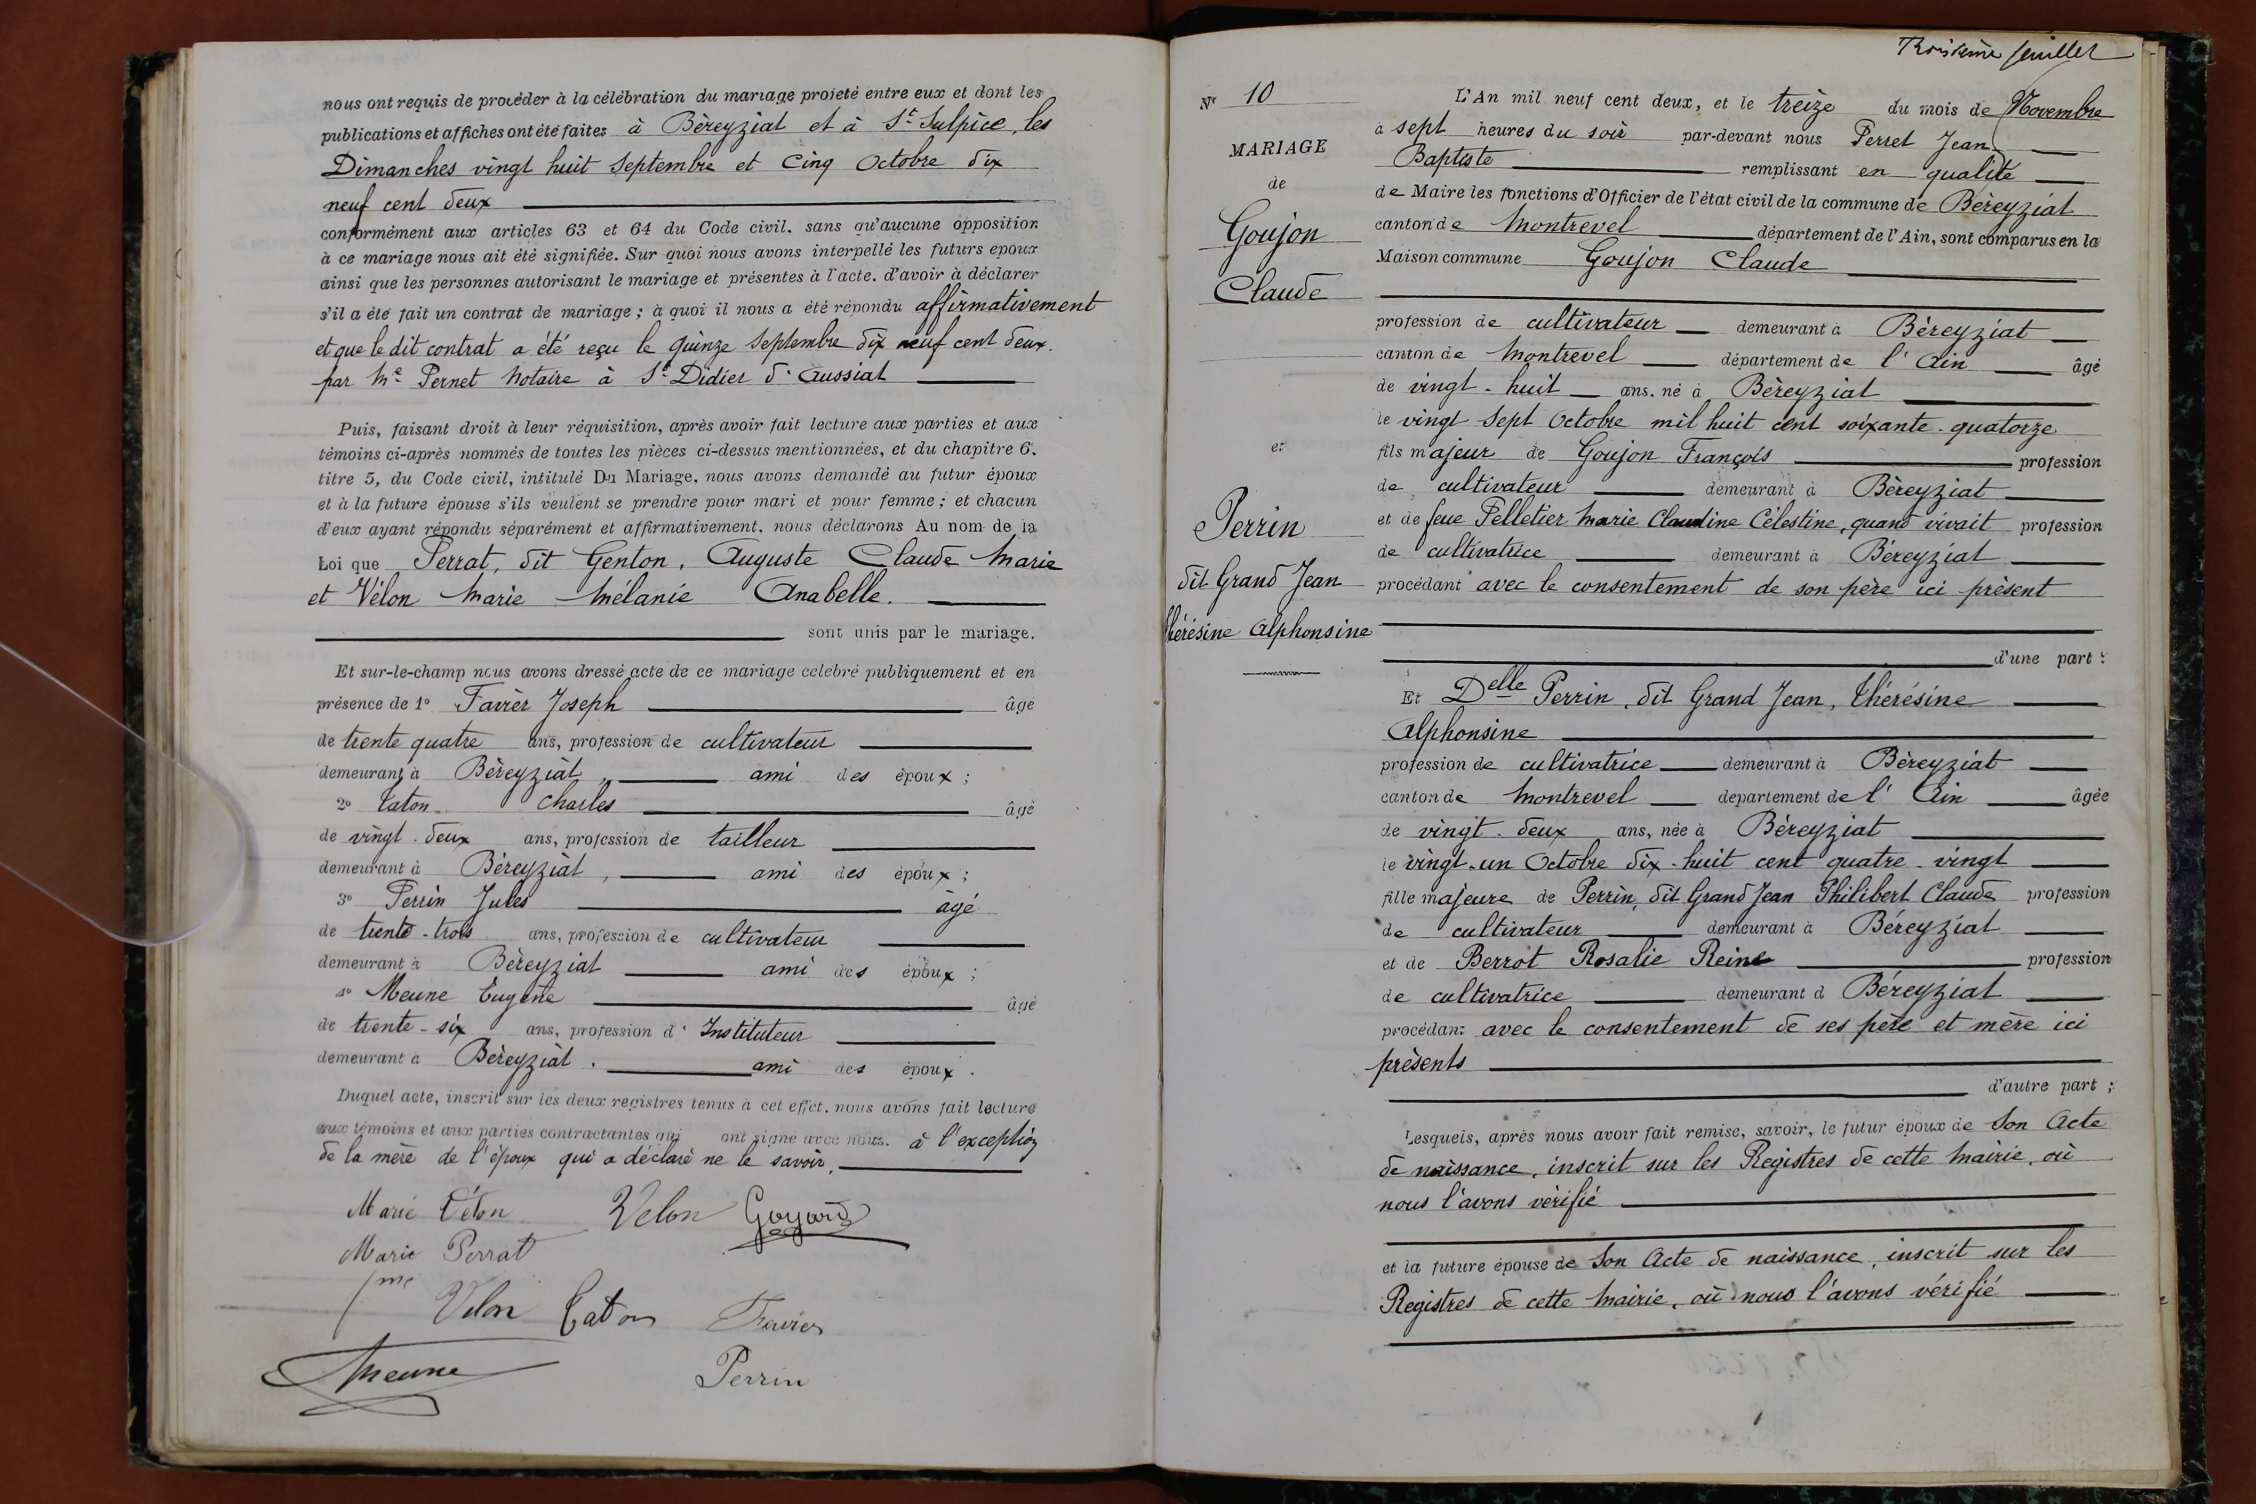 nous ont requis de procéder à la célébration du mariage projeté entre eux et dont les
publications et affiches ont été faites à Béreyziat et à St Sulpice, les
Dimanches vingt huit Septembre et Cinq Octobre dix
neuf cent deux
conformément aux articles 63 et 64 du Code civil, sans qu'aucune opposition
à ce mariage nous ait été signifiée. Sur quoi nous avons interpellé les futurs époux
ainsi que les personnes autorisant le mariage et présentes à l'acte, d'avoir à déclarer
s'il a été fait un contrat de mariage ; à quoi il nous a été répondu affirmativement
et que le dit contrat a été reçu le quinze Septembre dix neuf cent deux.
par Me Pernet Notaire à St Didier d'Aussiat
Puis, faisant droit à leur réquisition, après avoir fait lecture aux parties et aux
témoins ci-après nommés de toutes les pièces ci-dessus mentionnées, et du chapitre 6,
titre 5, du Code civil, intitulé Du Mariage, nous avons demandé au futur époux
et à la future épouse s'ils veulent se prendre pour mari et pour femme ; et chacun
d'eux ayant répondu séparément et affirmativement, nous déclarons Au nom de la
Loi que Perrat, dit Genton, Auguste Claude Marie
et Vélon Marie Mélanie Anabelle.
sont unis par le mariage.
Et sur-le-champ nous avons dressé acte de ce mariage célébré publiquement et en
présence de 1° Favier Joseph âgé
de trente quatre ans, profession de cultivateur
demeurant à Béreyziat, ami des époux ;
2° Caton Charles âgé
de vingt-deux ans, profession de tailleur
demeurant à Béreyziat, ami des époux ;
3° Perrin Jules âgé
de trente-trois ans, profession de cultivateur
demeurant à Béreyziat ami des époux ;
4° Meune Eugène âgé
de trente-six ans, profession d'Instituteur
demeurant à Béreyziat. ami des époux.
Duquel acte, inscrit sur les deux registres tenus à cet effet, nous avons fait lecture
aux témoins et aux parties contractantes qui ont signé avec nous. à l'exception
de la mère de l'époux qui a déclaré ne le savoir.
Marie Vélon Velon Goyard
Marie Perrat
fme Vélon Caton Favier
Meune Perrin
Troisième feuillet
N° 10
MARIAGE
de
Goujon
Claude
et
Perrin
dit Grand Jean
Thérésine Alphonsine
L'An mil neuf cent deux, et le treize du mois de Novembre
à sept heures du soir par-devant nous Perret Jean
Baptiste remplissant en qualité
de Maire les fonctions d'Officier de l'état civil de la commune de Béreyziat
canton de Montrevel département de l'Ain, sont comparus en la
Maison commune Goujon Claude
profession de cultivateur demeurant à Béreyziat
canton de Montrevel département de l'Ain âgé
de vingt-huit ans, né à Béreyziat
le vingt-sept Octobre mil huit cent soixante-quatorze
fils majeur de Goujon François profession
de cultivateur demeurant à Béreyziat
et de feue Pelletier Marie Claudine Célestine, quand vivait profession
de cultivatrice demeurant à Béreyziat
procédant avec le consentement de son père ici présent
d'une part ;
Et Delle Perrin, dit Grand Jean, Thérésine
Alphonsine
profession de cultivatrice demeurant à Béreyziat
canton de Montrevel département de l'Ain âgée
de vingt-deux ans, née à Béreyziat
le vingt-un Octobre dix-huit cent quatre-vingt
fille majeure de Perrin, dit Grand Jean Philibert Claude profession
de cultivateur demeurant à Béreyziat
et de Berrot Rosalie Reine profession
de cultivatrice demeurant à Béreyziat
procédant avec le consentement de ses père et mère ici
présents
d'autre part ;
Lesquels, après nous avoir fait remise, savoir, le futur époux de Son Acte
de naissance, inscrit sur les Registres de cette Mairie, où
nous l'avons vérifié
et la future épouse de Son Acte de naissance, inscrit sur les
Registres de cette Mairie, où nous l'avons vérifié